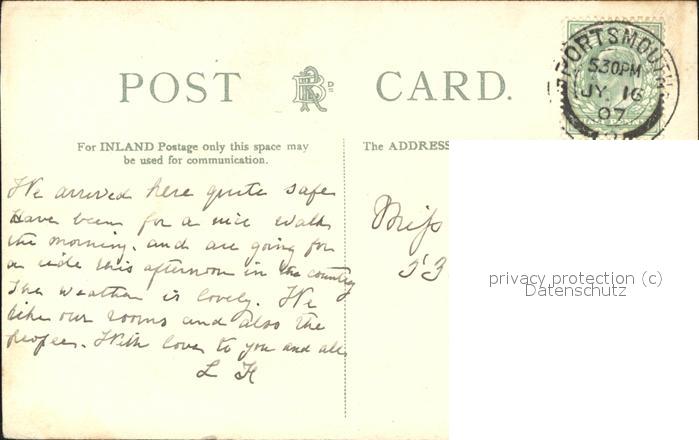 PORTSMOUTH
5.30PM
JY. 16
07
POST CARD.
For INLAND Postage only this space may
be used for communication.
The ADDRESS
We arrived here quite safe
Have been for a nice walk
this morning. and are going for
a ride this afternoon in the country
The weather is lovely. We
like our rooms and also the
people. With love to you and all
L H
Miss
53
privacy protection (c)
Datenschutz